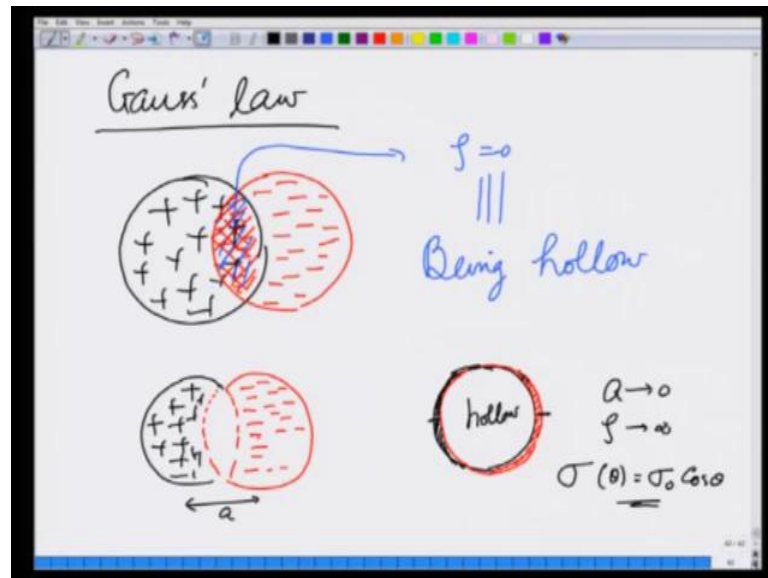 File Edit View Insert Actions Tools Help
Gauss' law
ρ = 0
Being hollow
hollow
a → 0
ρ → ∞
σ (θ) = σ₀ Cosθ
a